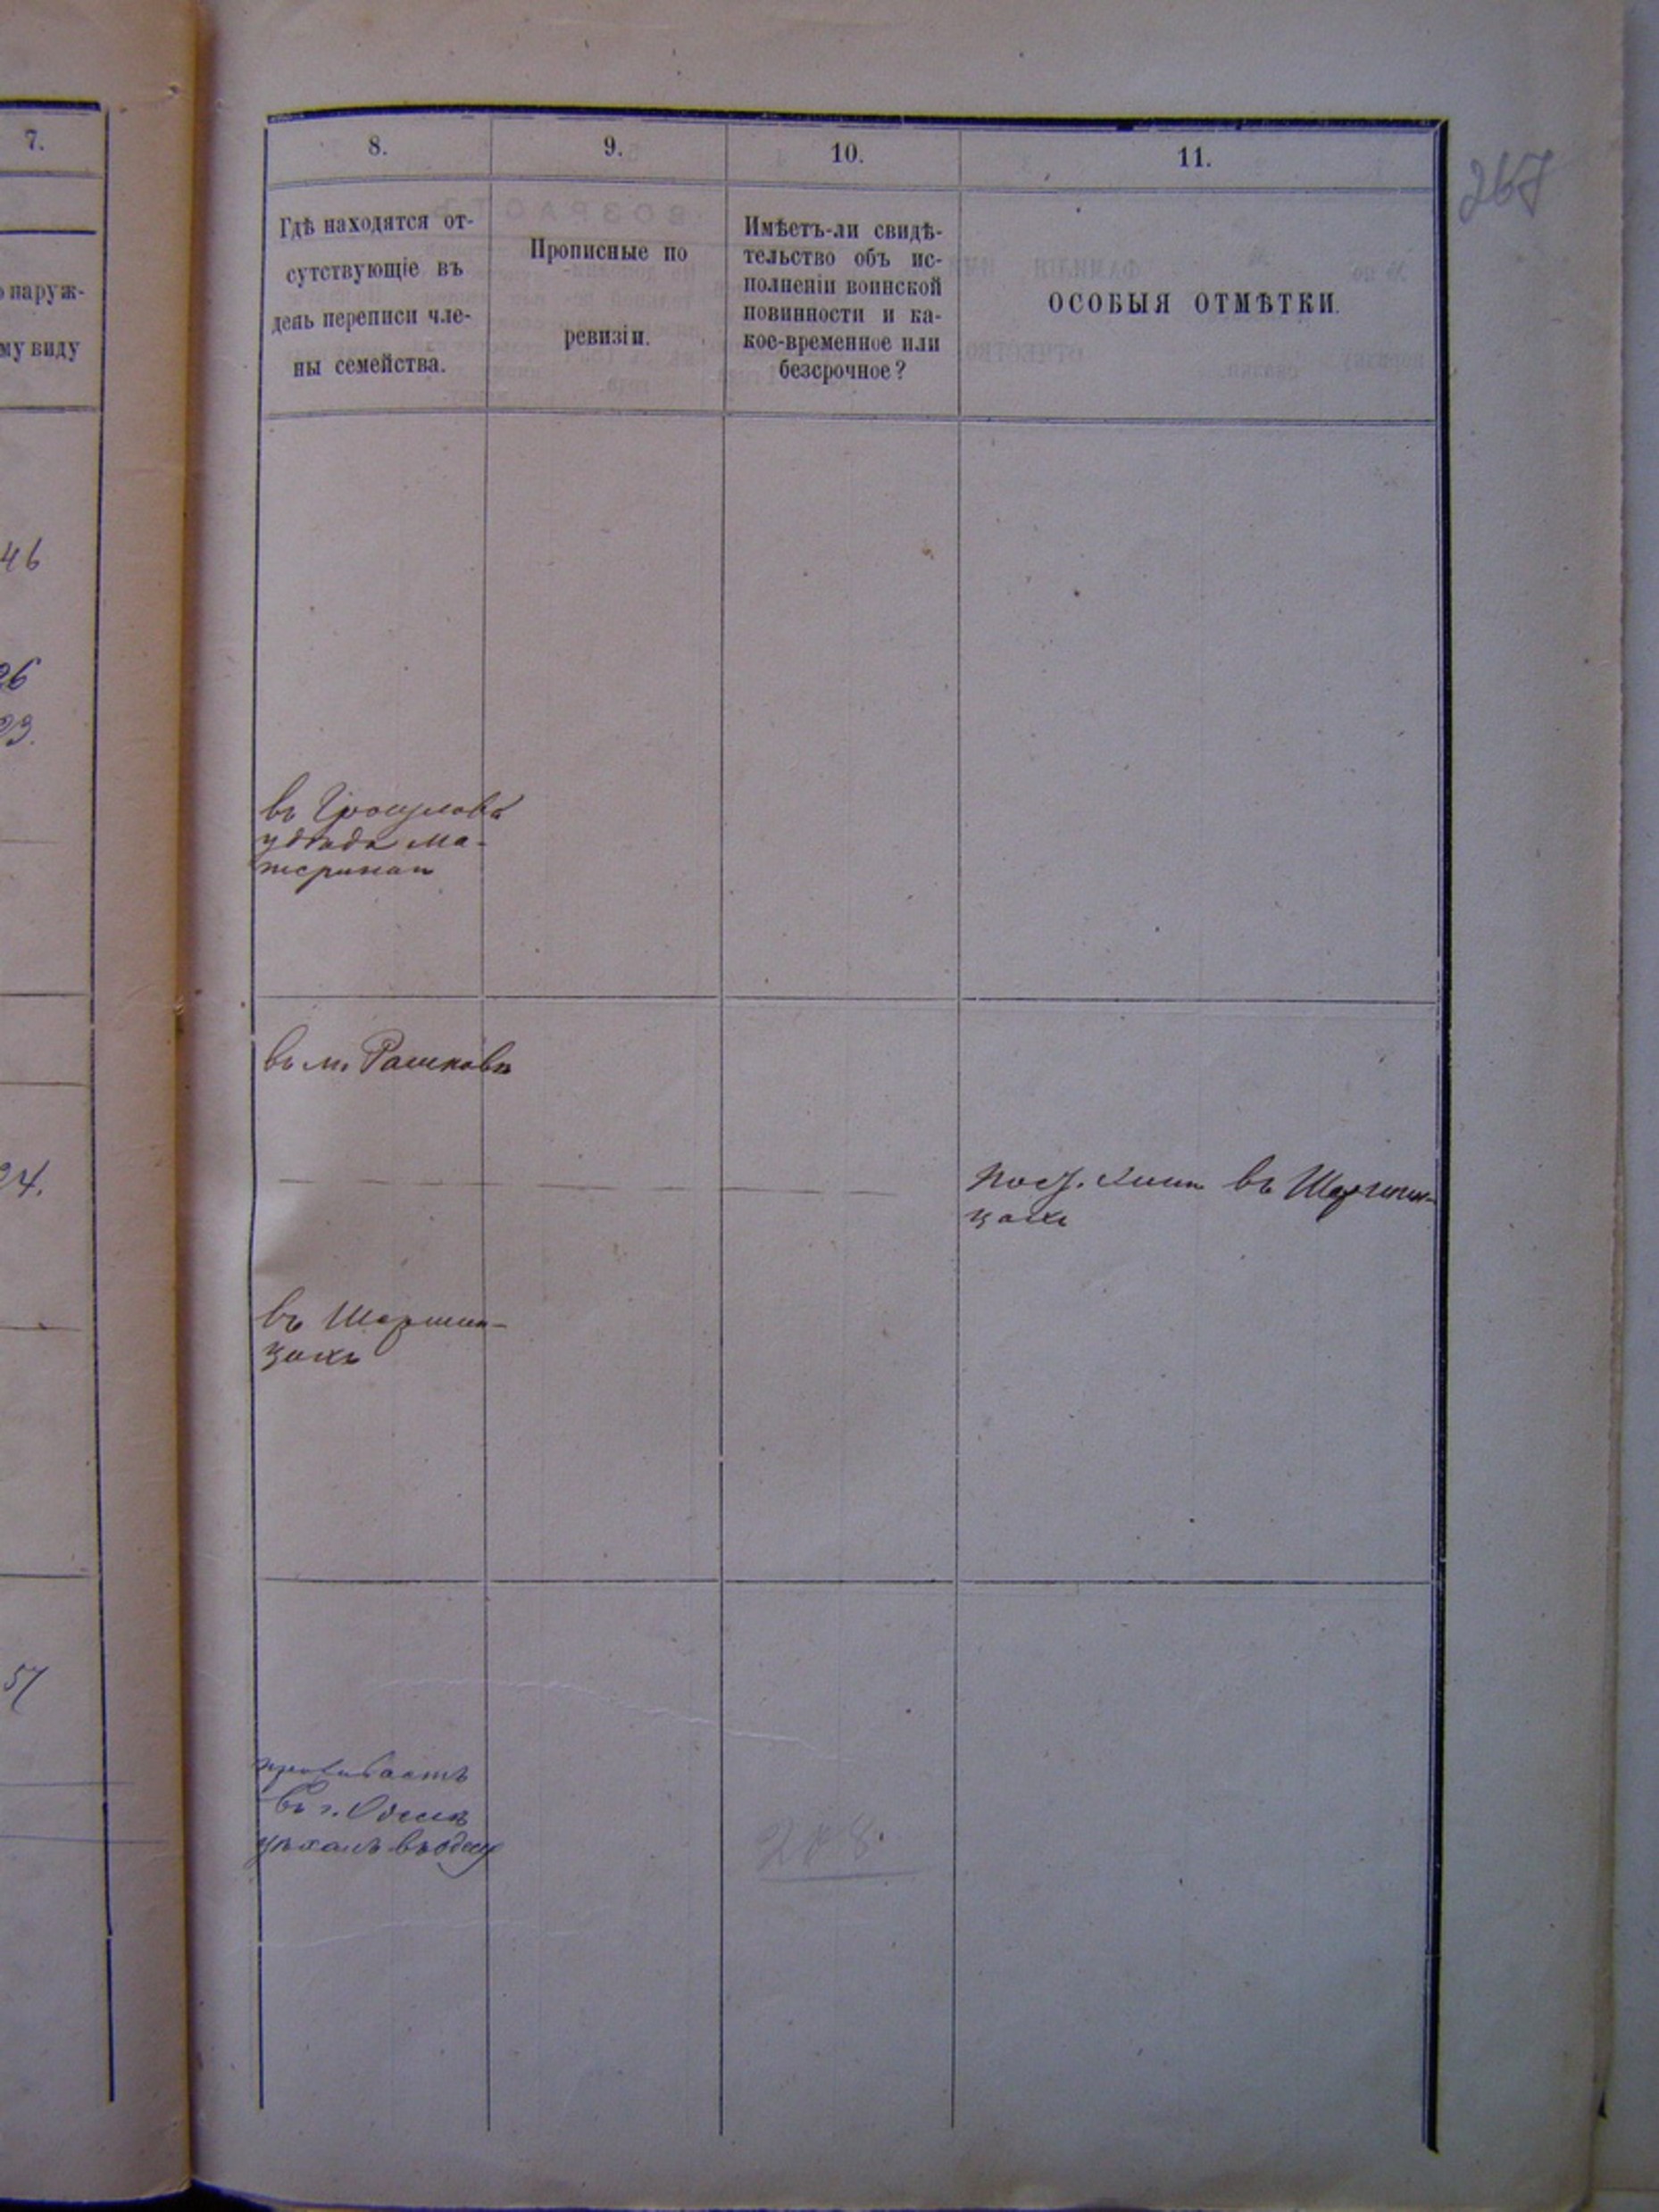 7.
о наруж-
му виду
46
26
23.
24.
57
8.
9.
10.
11.
267
Гдѣ находятся от-
сутствующіе въ
день переписи чле-
ны семейства.
Прописные по
ревизіи.
Имѣетъ-ли свидѣ-
тельство объ ис-
полненіи воинской
повинности и ка-
кое-временное или
безсрочное?
ОСОБЫЯ ОТМѢТКИ.
въ
у дѣда ма-
въ м. Рашковѣ
въ
цахъ
въ
цахъ
проживаетъ
въ г. Одессѣ
уѣхалъ въ Одессу